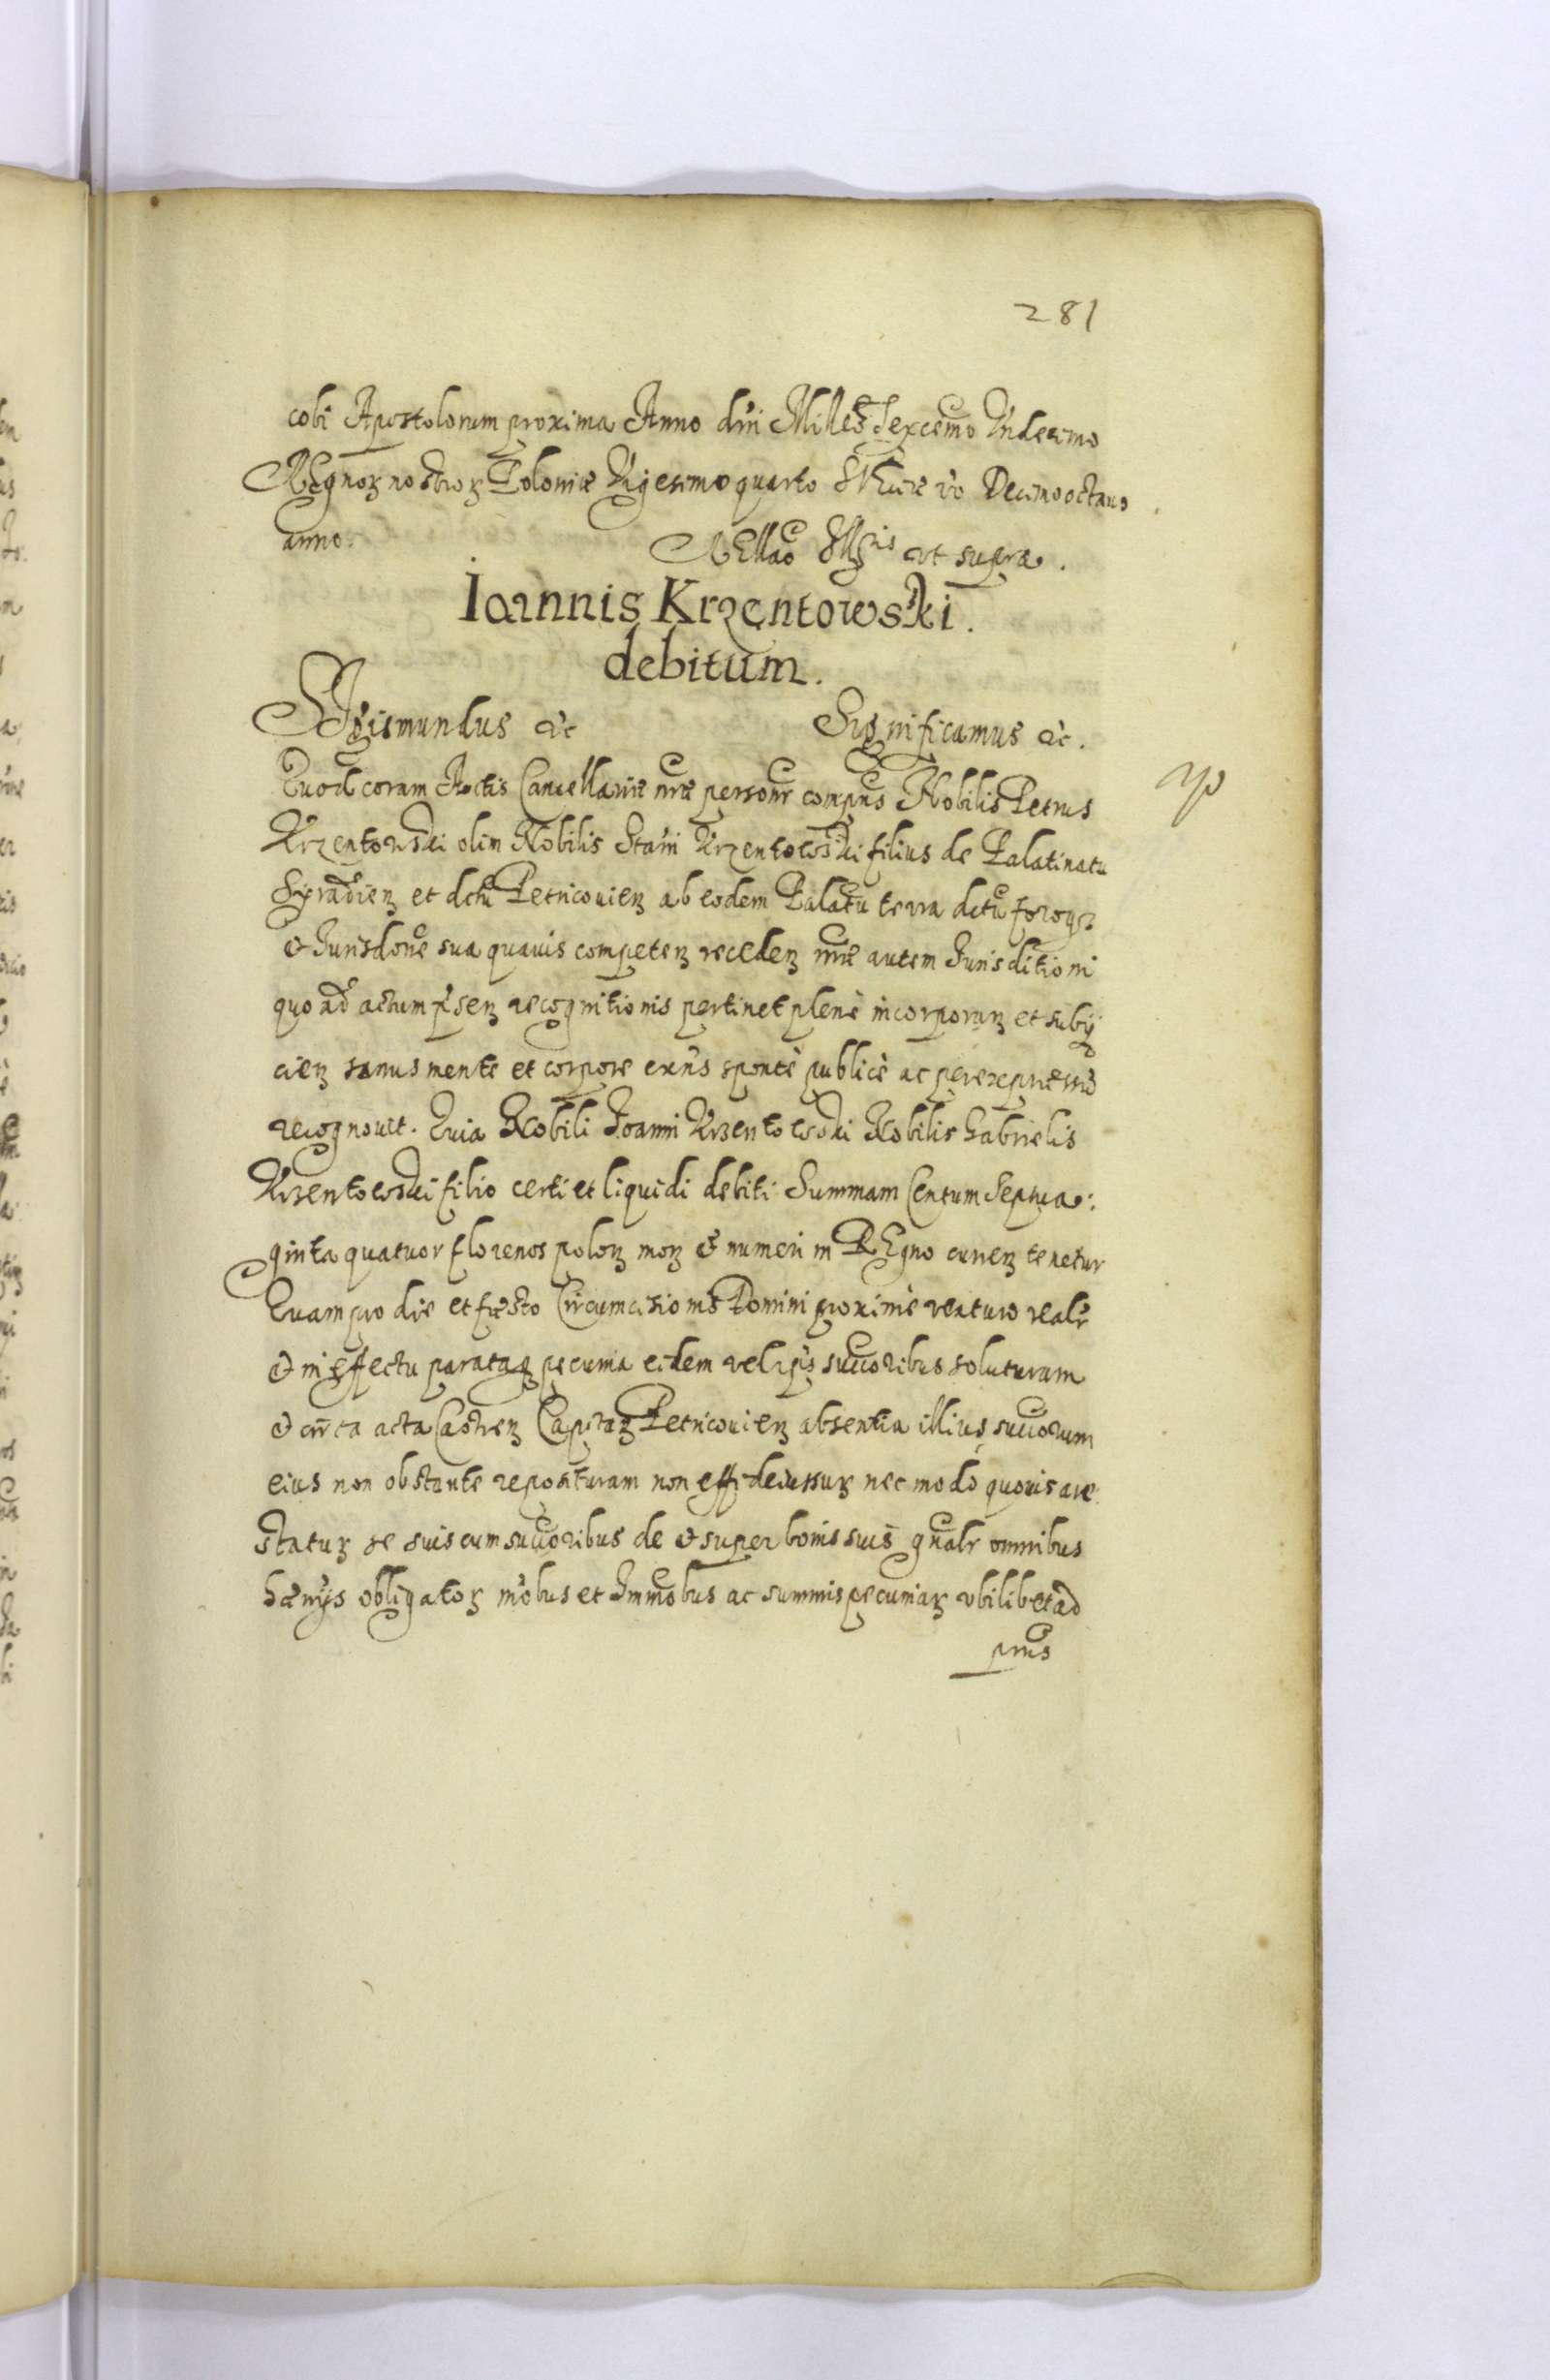 281
cobi Apostolorum proxima Anno dni Millo Sexcemo Undecimo
REgnorz nostrorz Poloniæ Vigesimo quarto SVeciæ vo Decimo octavo
anno. RElläo Illris ut supra.
Ioannis Krzentowski.
debitum.
SIgismundus &c Significamus &c.
Quod coram Actis Cancellariæ nræ personr compns Nobilis Petrus
Krzentowski olim Nobilis Stani Krzentowski filius de Palatinatu
Syradienz et dctu Petricovienz ab eodem Palatu terra dctu foroqz
& Jurisdone sua quavis competenz recedenz nræ autem Jurisditioni
quo ad actum psenz recognitionis pertinet plenè incorporanz et subij
cienz sanus mente et corpore exns spontè publicè ac per expressũ
recognovit. Quia Nobili Joanni Krzentowski Nobilis Gabrielis
Krzentowski filio certi et liquidi debiti Summam Centum Septua:
ginta quatuor florenos polonz monz & numeri in REgno currenz tenetur
Quam pro die et fæsto Circumcisionis Domini proximè venturo realr
& in effectu parataqz pecunia eidem vel ipis succoribus soluturam
& circa acta Castrenz Capitanz Petricovienz absentia illius succorum
eius non obstante reposituram non effideiussurz nec modo quovis are
staturz se suis cum succoribus de & super bonis suis gnalr omnibus
hærijs obligatorz mobus et Immobus ac summis pecuniarz ubilibet ad
pns